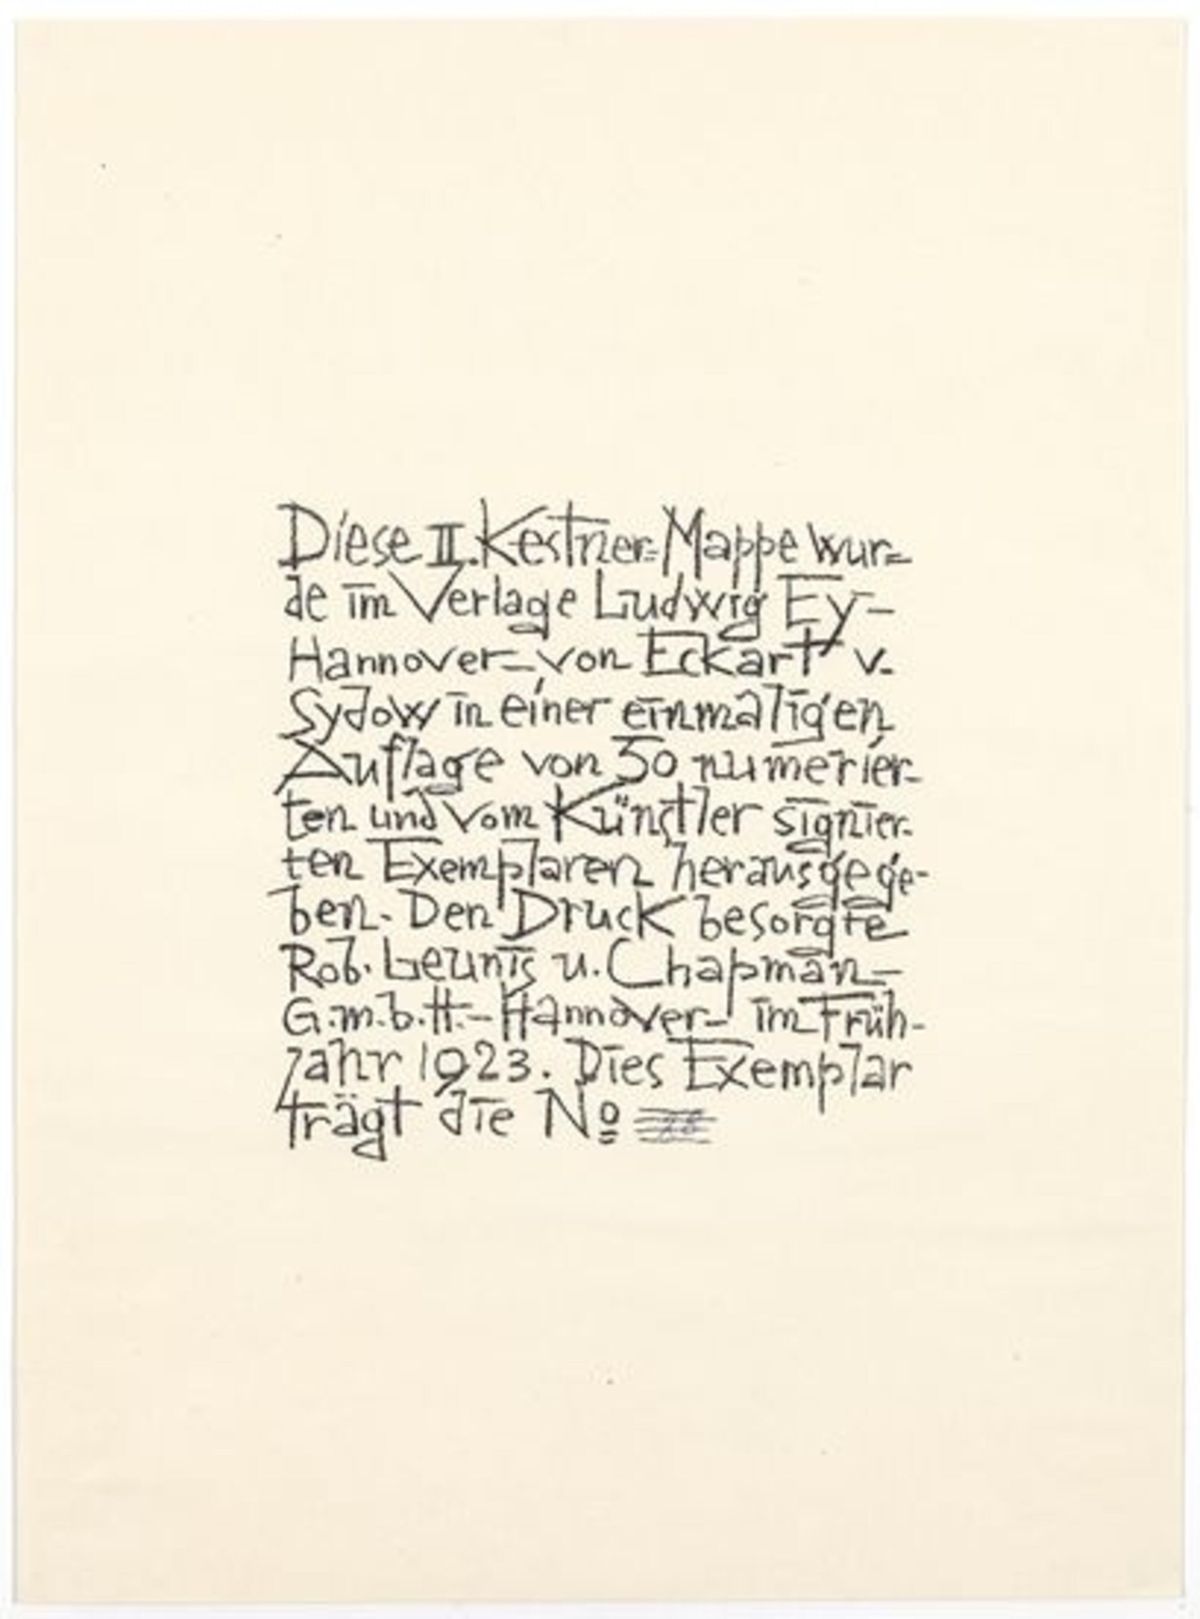 Diese II. Kestner-Mappe wur=
de im Verlage Ludwig Ey-
Hannover-von Eckart v.
Sydow in einer einmaligen
Auflage von 50 numerier-
ten und vom Künstler signier-
ten Exemplaren herausgege-
ben. Den Druck besorgte
Rob. Leunis u. Chapman-
G.m.b.H.-Hannover- im Früh-
jahr 1923. Dies Exemplar
trägt die No